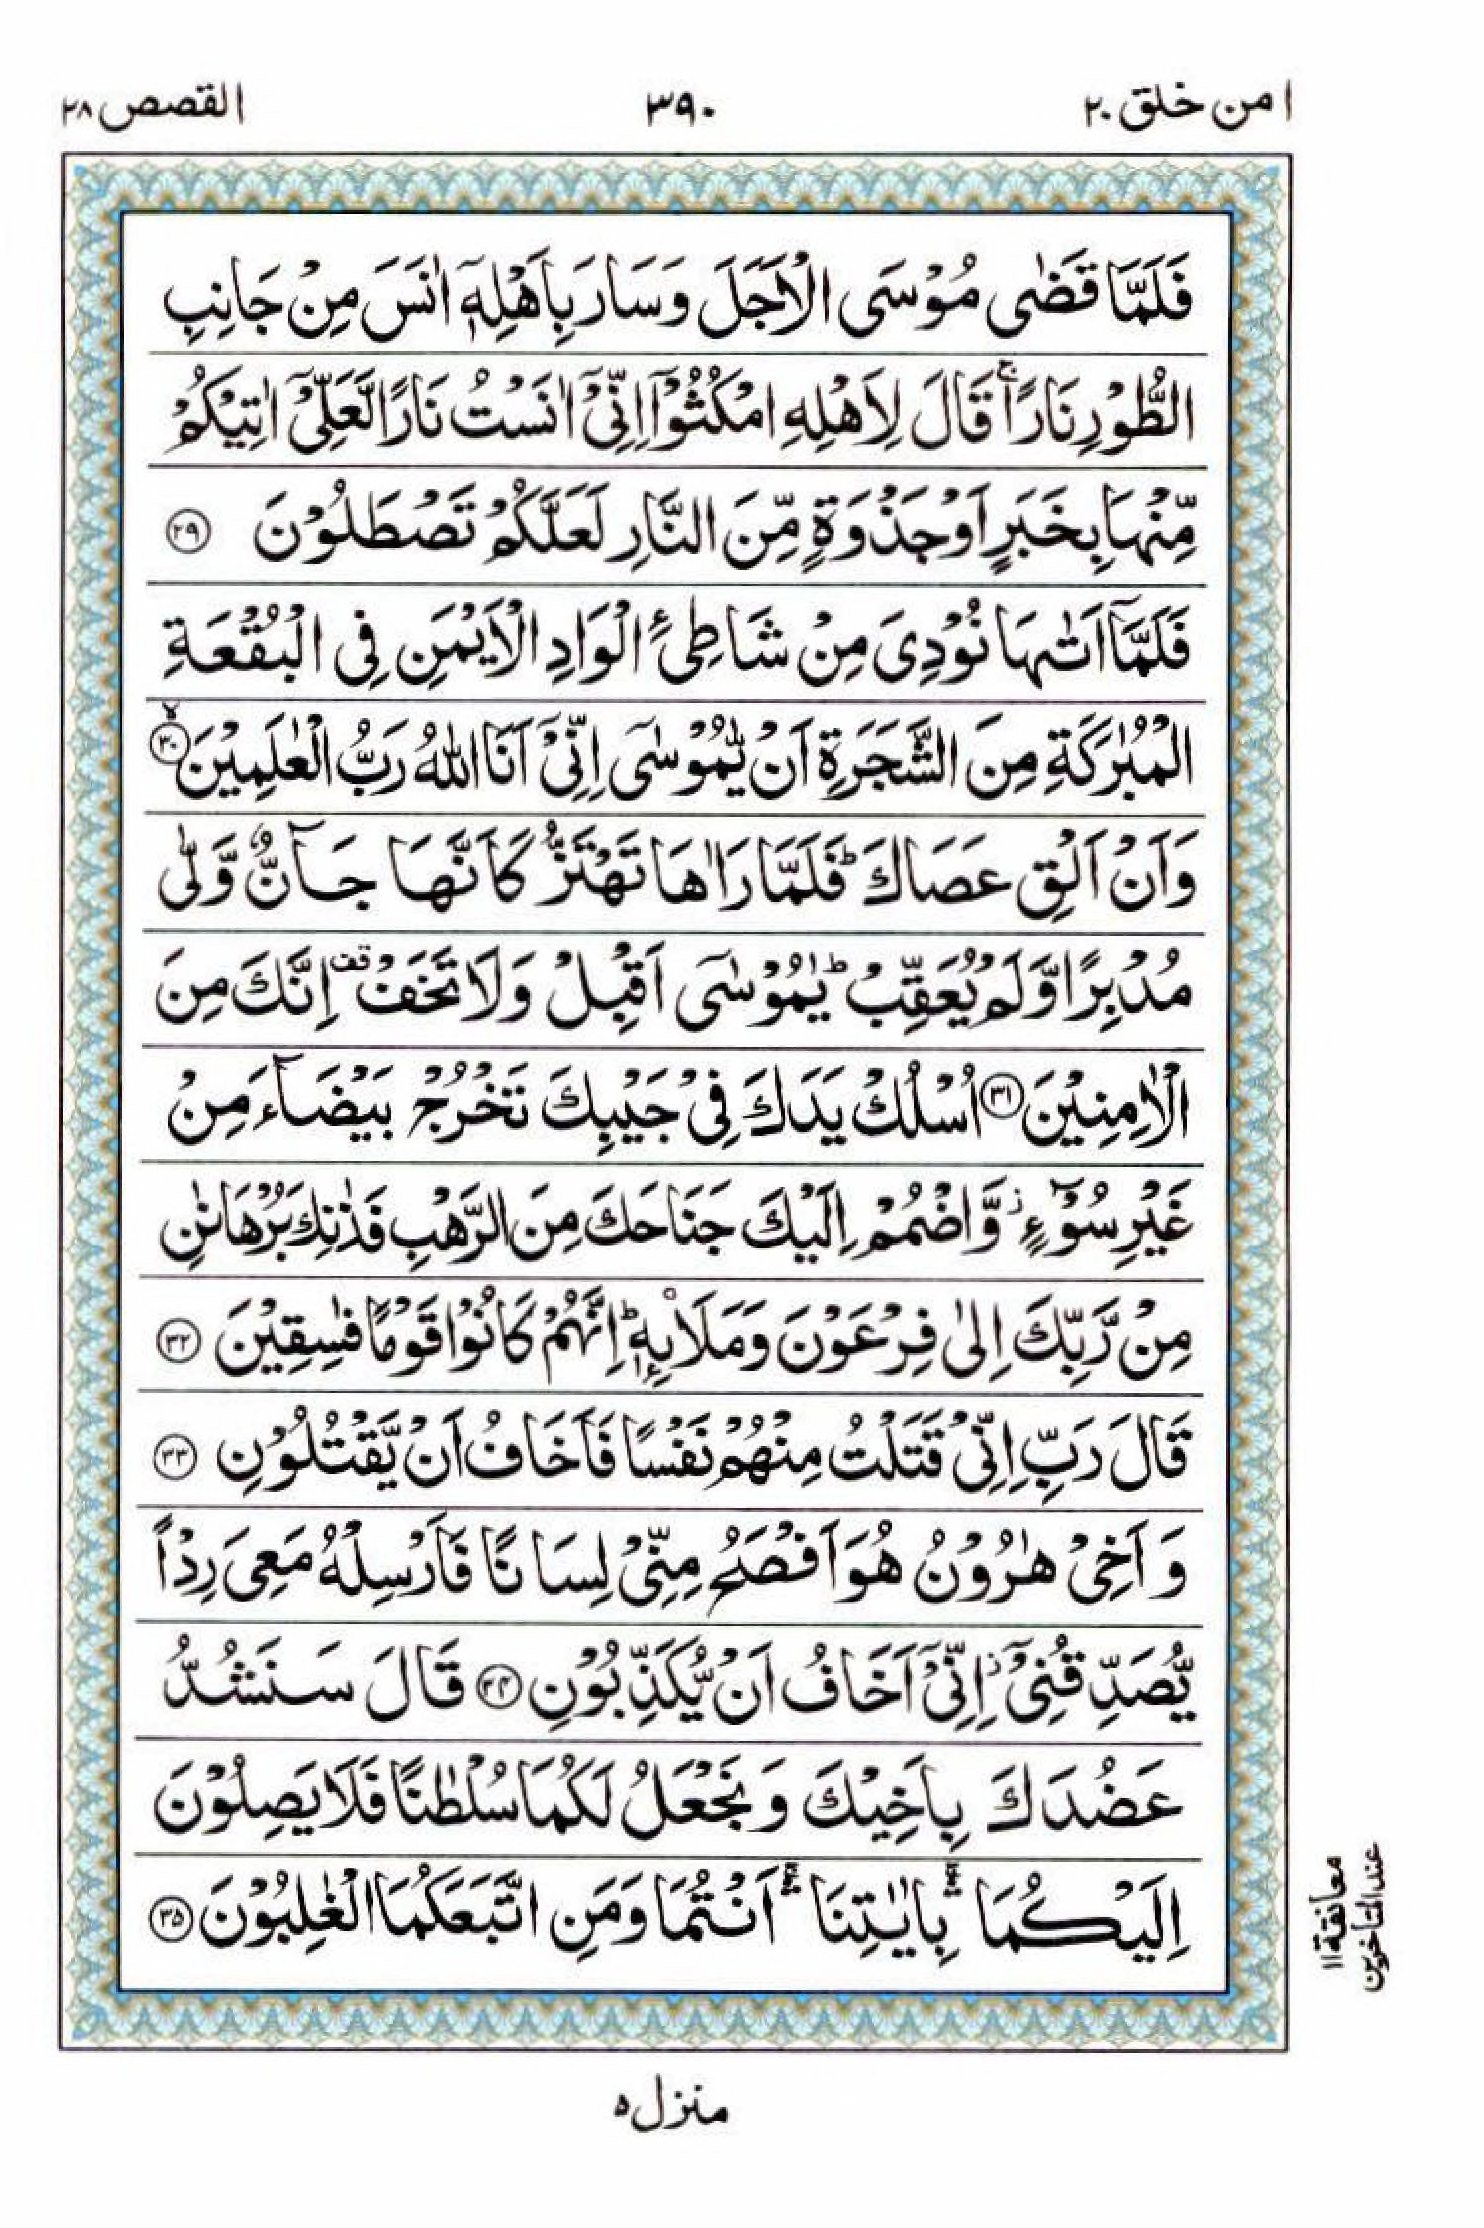 امن خلق ٢٠
٣٩٠
القصص ٢٨
فَلَمَّا قَضٰى مُوْسَى الْاَجَلَ وَسَارَ بِاَهْلِهٖۤ اٰنَسَ مِنْ جَانِبِ
الطُّوْرِ نَارًاۚ قَالَ لِاَهْلِهِ امْكُثُوْۤا اِنِّيْۤ اٰنَسْتُ نَارًا لَّعَلِّيْۤ اٰتِيْكُمْ
مِّنْهَا بِخَبَرٍ اَوْ جَذْوَةٍ مِّنَ النَّارِ لَعَلَّكُمْ تَصْطَلُوْنَ ﴿٢٩﴾
فَلَمَّاۤ اَتٰىهَا نُوْدِيَ مِنْ شَاطِئِ الْوَادِ الْاَيْمَنِ فِي الْبُقْعَةِ
الْمُبٰرَكَةِ مِنَ الشَّجَرَةِ اَنْ يّٰمُوْسٰۤى اِنِّيْۤ اَنَا اللّٰهُ رَبُّ الْعٰلَمِيْنَ ﴿٣٠﴾ۙ
وَاَنْ اَلْقِ عَصَاكَؕ فَلَمَّا رَاٰهَا تَهْتَزُّ كَاَنَّهَا جَآنٌّ وَّلّٰى
مُدْبِرًا وَّلَمْ يُعَقِّبْؕ يٰمُوْسٰۤى اَقْبِلْ وَلَا تَخَفْ۫ اِنَّكَ مِنَ
الْاٰمِنِيْنَ ﴿٣١﴾ اُسْلُكْ يَدَكَ فِيْ جَيْبِكَ تَخْرُجْ بَيْضَآءَ مِنْ
غَيْرِ سُوْٓءٍ٘ وَّاضْمُمْ اِلَيْكَ جَنَاحَكَ مِنَ الرَّهْبِ فَذٰنِكَ بُرْهَانٰنِ
مِنْ رَّبِّكَ اِلٰى فِرْعَوْنَ وَمَلَا۠ئِهٖؕ اِنَّهُمْ كَانُوْا قَوْمًا فٰسِقِيْنَ ﴿٣٢﴾
قَالَ رَبِّ اِنِّيْ قَتَلْتُ مِنْهُمْ نَفْسًا فَاَخَافُ اَنْ يَّقْتُلُوْنِ ﴿٣٣﴾
وَاَخِيْ هٰرُوْنُ هُوَ اَفْصَحُ مِنِّيْ لِسَانًا فَاَرْسِلْهُ مَعِيَ رِدْاً
يُّصَدِّقُنِيْۤ٘ اِنِّيْۤ اَخَافُ اَنْ يُّكَذِّبُوْنِ ﴿٣٤﴾ قَالَ سَنَشُدُّ
عَضُدَكَ بِاَخِيْكَ وَنَجْعَلُ لَكُمَا سُلْطٰنًا فَلَا يَصِلُوْنَ
اِلَيْكُمَاۛ بِاٰيٰتِنَاۛ اَنْتُمَا وَمَنِ اتَّبَعَكُمَا الْغٰلِبُوْنَ ﴿٣٥﴾
معانقة ١١
عند المتأخرين
منزل ٥